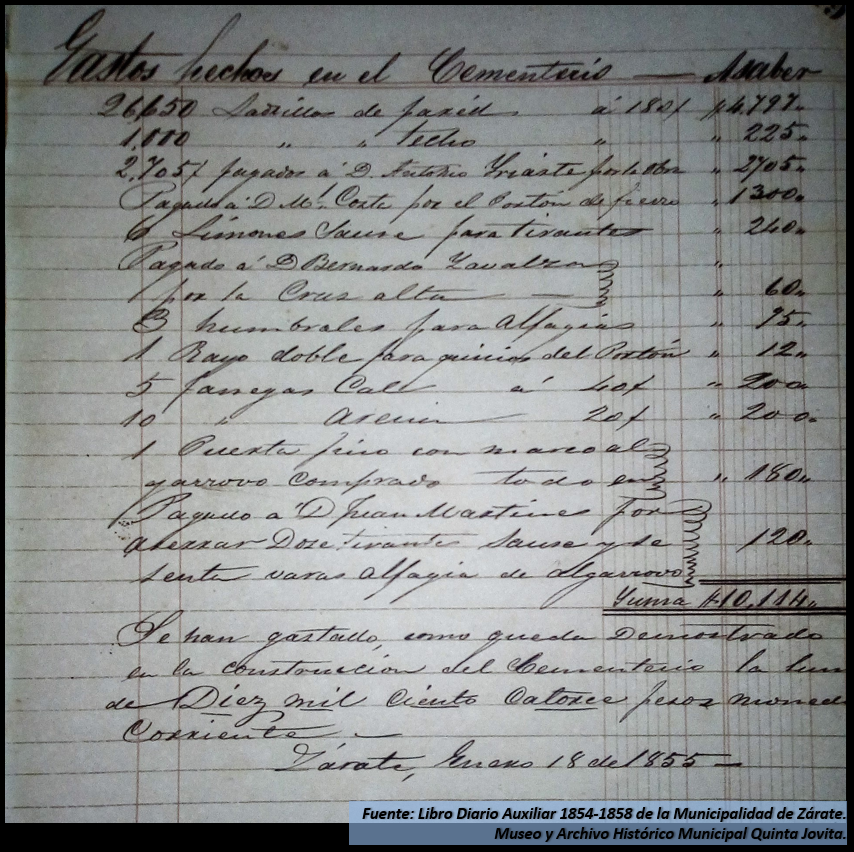 Gastos hechos en el Cementerio — A saber
26,650 Ladrillos de paréd á 180/ $ 4,797"
1,000 " " techo " " 225"
2,705/ pagados á D. Antonio Yriarte por la obra " 2705"
Pagado á D Ml. Costa por el Portón de fierro " 1300"
6 Limones Sause para tirantes " 240"
Pagado á D Bernardo Zavalza "
1 por la Crus alta — " 60"
3 humbrales para alfagias " 75"
1 Rayo doble para quicios del Portón " 12"
5 fanegas Cal á 40/ " 200
10 " arena 20/ " 200"
1 Puerta pino con marco al
garrovo comprado todo en " 180"
Pagado a D Juan Martines por
aserrar Dose tirantes Sause y se
senta varas alfagia de algarrovo 120"
Suma $ 10,114"
Se han gastado, como queda Demostrado
en la construcción del Cementerio la sum
de Diez mil Ciento Catorce pesos moned
Corriente —
Zárate, Enero 18 de 1855 —
Fuente: Libro Diario Auxiliar 1854-1858 de la Municipalidad de Zárate.
Museo y Archivo Histórico Municipal Quinta Jovita.